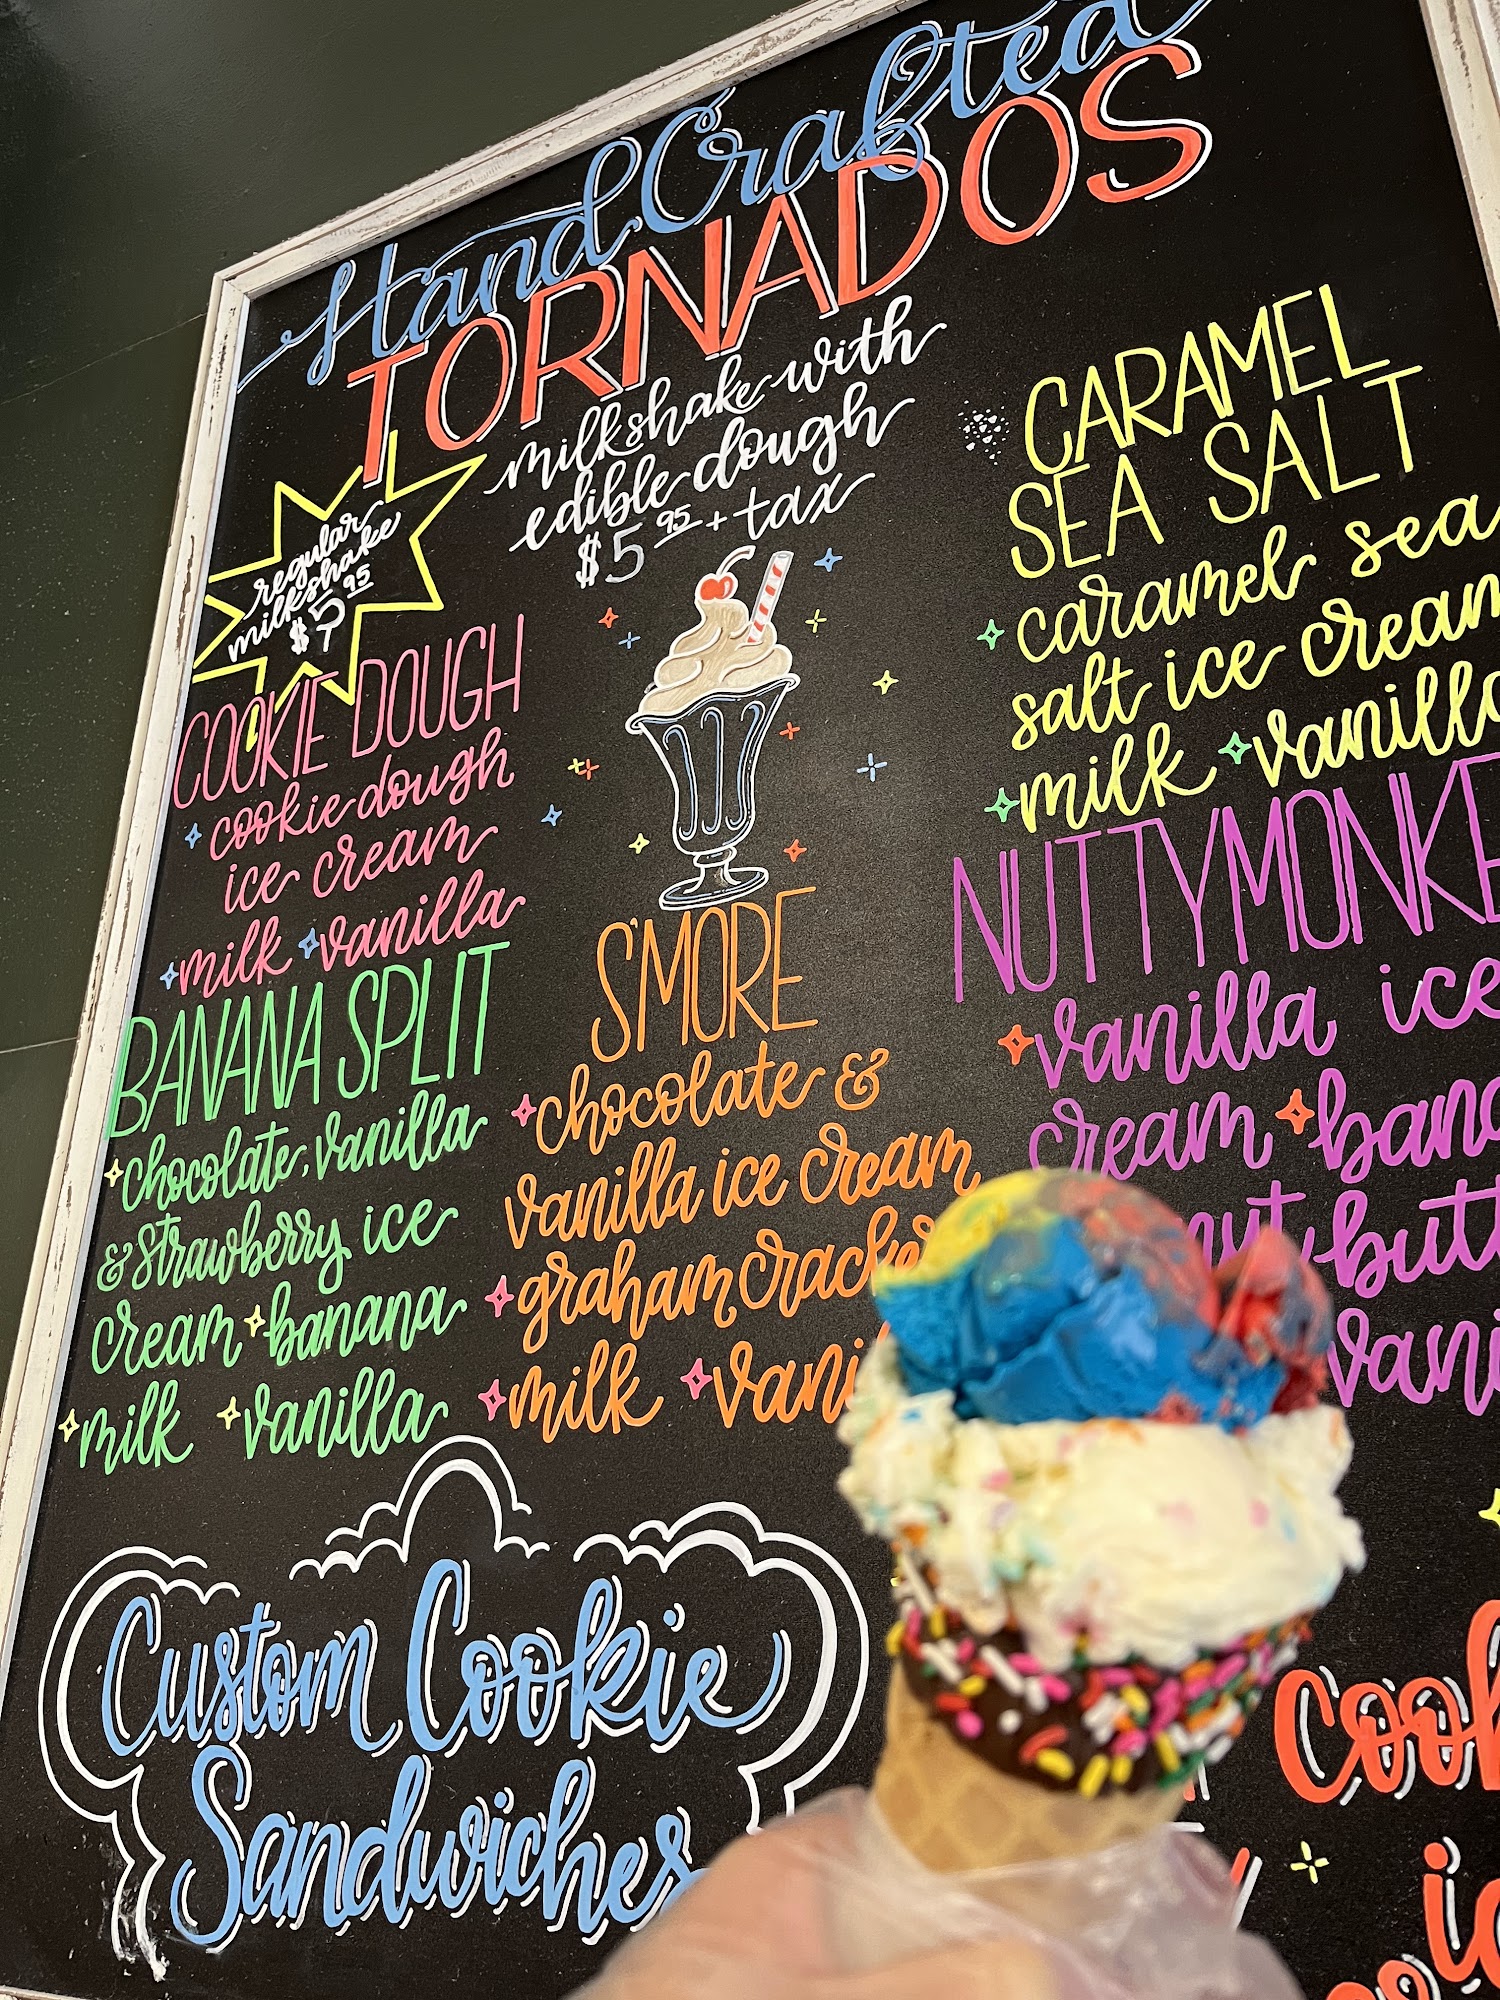 Hand Crafted
TORNADOS
milkshake with
edible dough
$5.95 + tax
regular
milkshake
$5.95
COOKIE DOUGH
cookie dough
ice cream
milk vanilla
BANANA SPLIT
chocolate, vanilla
& strawberry ice
cream banana
milk vanilla
S'MORE
chocolate &
vanilla ice cream
graham cracker
milk
CARAMEL
SEA SALT
caramel sea
salt ice cream
milk vanilla
vanilla ice
cream
Custom Cookie
Sandwiches